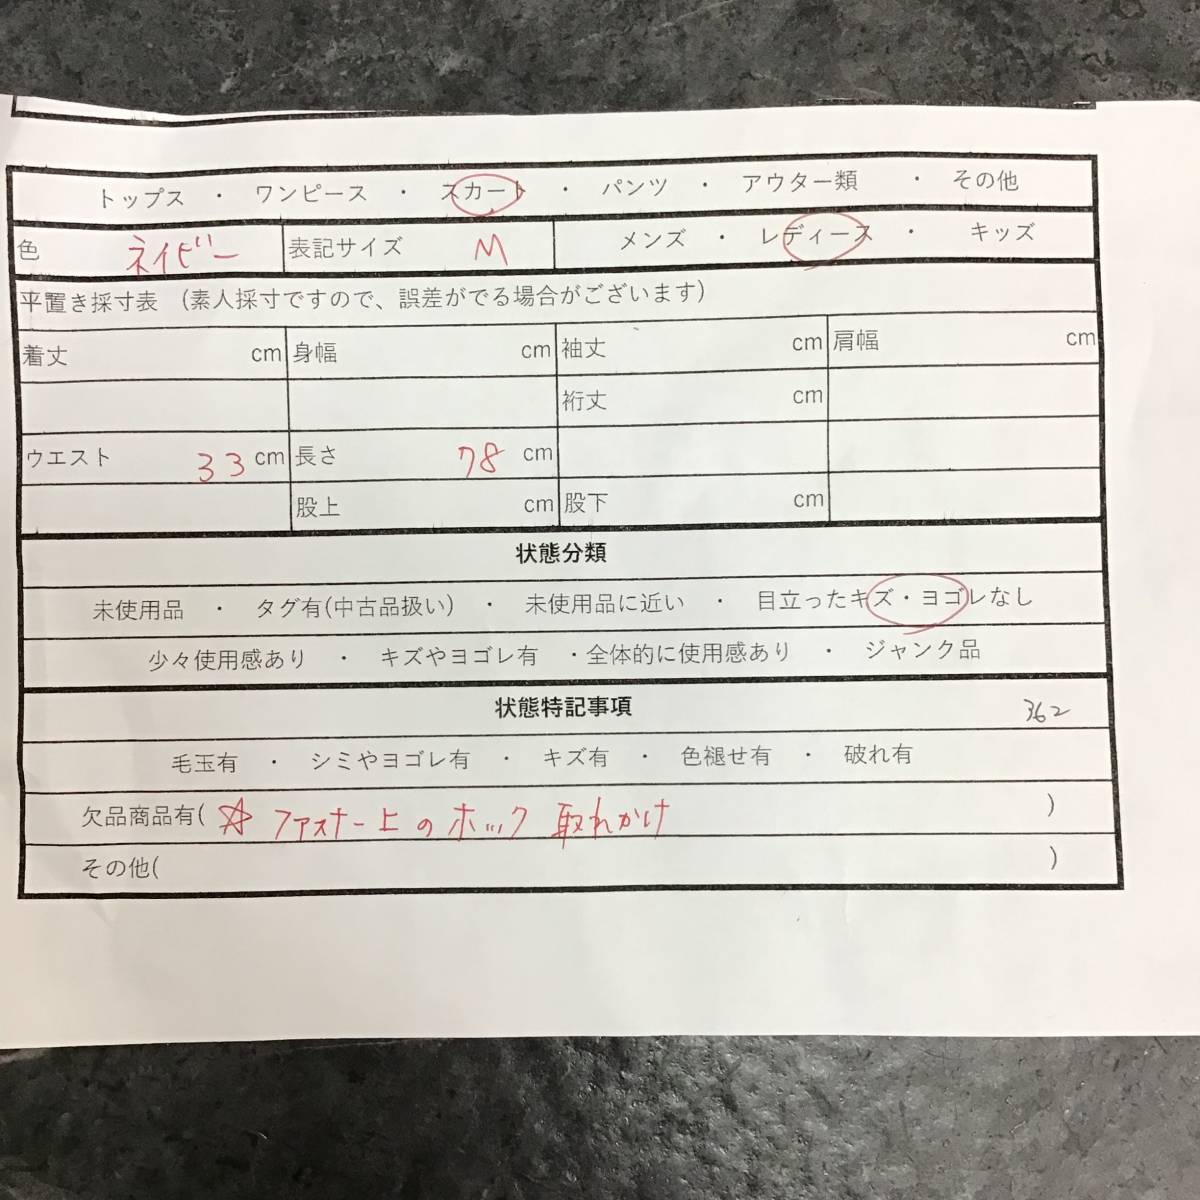 トップス ・ ワンピース ・ スカート ・ パンツ ・ アウター類 ・ その他
色 ネイビー 表記サイズ M メンズ ・ レディース ・ キッズ
平置き採寸表 (素人採寸ですので、誤差がでる場合がございます)
着丈 cm 身幅 cm 袖丈 cm 肩幅 cm
裄丈 cm
ウエスト 33 cm 長さ 78 cm
股上 cm 股下 cm
状態分類
未使用品 ・ タグ有(中古品扱い) ・ 未使用品に近い ・ 目立ったキズ・ヨゴレなし
少々使用感あり ・ キズやヨゴレ有 ・全体的に使用感あり ・ ジャンク品
状態特記事項 362
毛玉有 ・ シミやヨゴレ有 ・ キズ有 ・ 色褪せ有 ・ 破れ有
欠品商品有( ☆ ファスナー上のホック 取れかけ )
その他( )